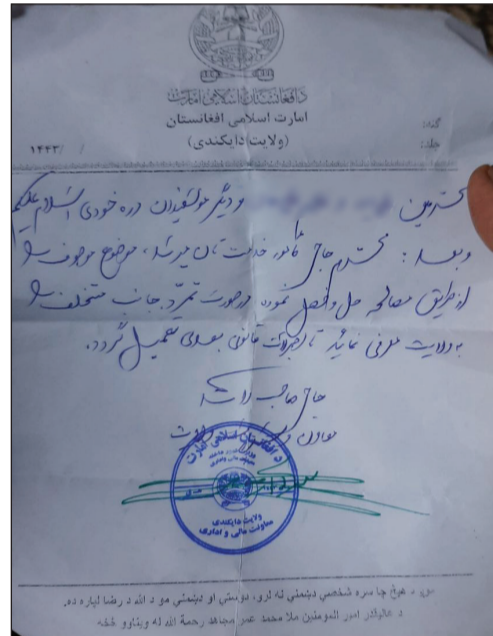 د افغانستان اسلامی امارت
امارت اسلامی افغانستان
(ولایت دایکندی)
گڼه:
جلد:
/ /۱۴۴۳
محترمین و دیگر موسفیدان دره خودی السلام علیکم
وبعد: محترم حاجی خدمت تان میرسد، موضوع موصوف را
از طریق مصالحه حل و فصل نموده در صورت تمرد جانب متخلف را
به ولایت معرفی نمائید تا اجراآت قانونی بعدی تعمیل گردد.
حاجی صاحب
معاون ولایت
د افغانستان اسلامی امارت
ولایت دایکندی
معاونت مالی و اداری
موږ د هیچا سره شخصي دښمني نه لرو، دوستي او دښمني مو د الله د رضا لپاره ده.
د عالیقدر امیر المومنین ملا محمد عمر مجاهد رحمة الله له ویناوو څخه